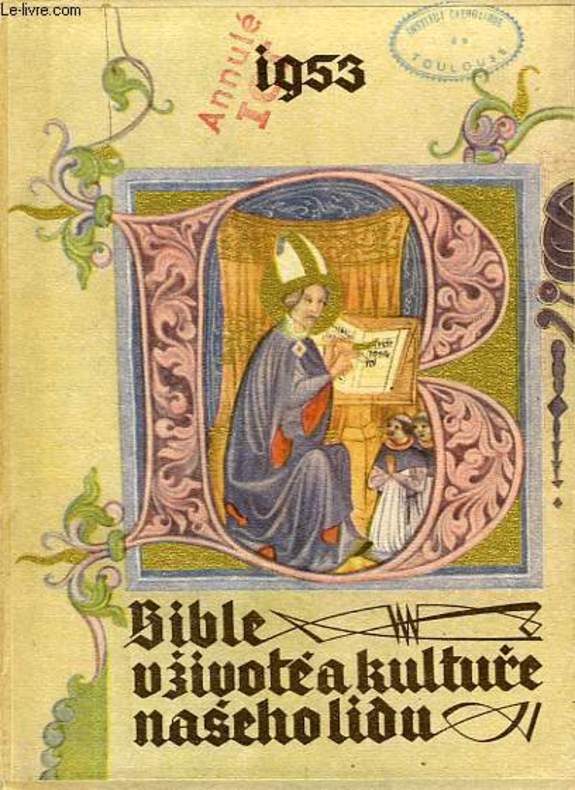 Le-livre.com
1953
Annulé
INSTITUT CATHOLIQUE
DE
TOULOUSE
Bible
v životě a kultuře
našeho lidu